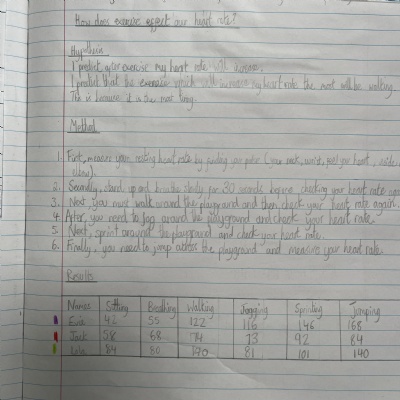 How does exercise effect our heart rate?
Hypothesis
I predict after exercise my heart rate will increase.
I predict that the exercise which will increase my heart rate the most will be walking.
This is because it is the most tiring.
Method
1. First, measure your resting heart rate by finding your pulse (your neck, wrist, feel your heart, inside
elbow).
2. Secondly, stand up and breathe steadily for 30 seconds before checking your heart rate again
3. Next you must walk around the playground and then check your heart rate again.
4. After, you need to jog around the playground and check your heart rate
5. Next, sprint around the playground and check your heart rate.
6. Finally, you need to jump across the playground and measure your heart rate.
Results
Names Sitting Breathing Walking Jogging Sprinting Jumping
Evie 42 55 122 116 146 168
Jack 58 68 74 73 92 84
Lola 84 80 81 101 140